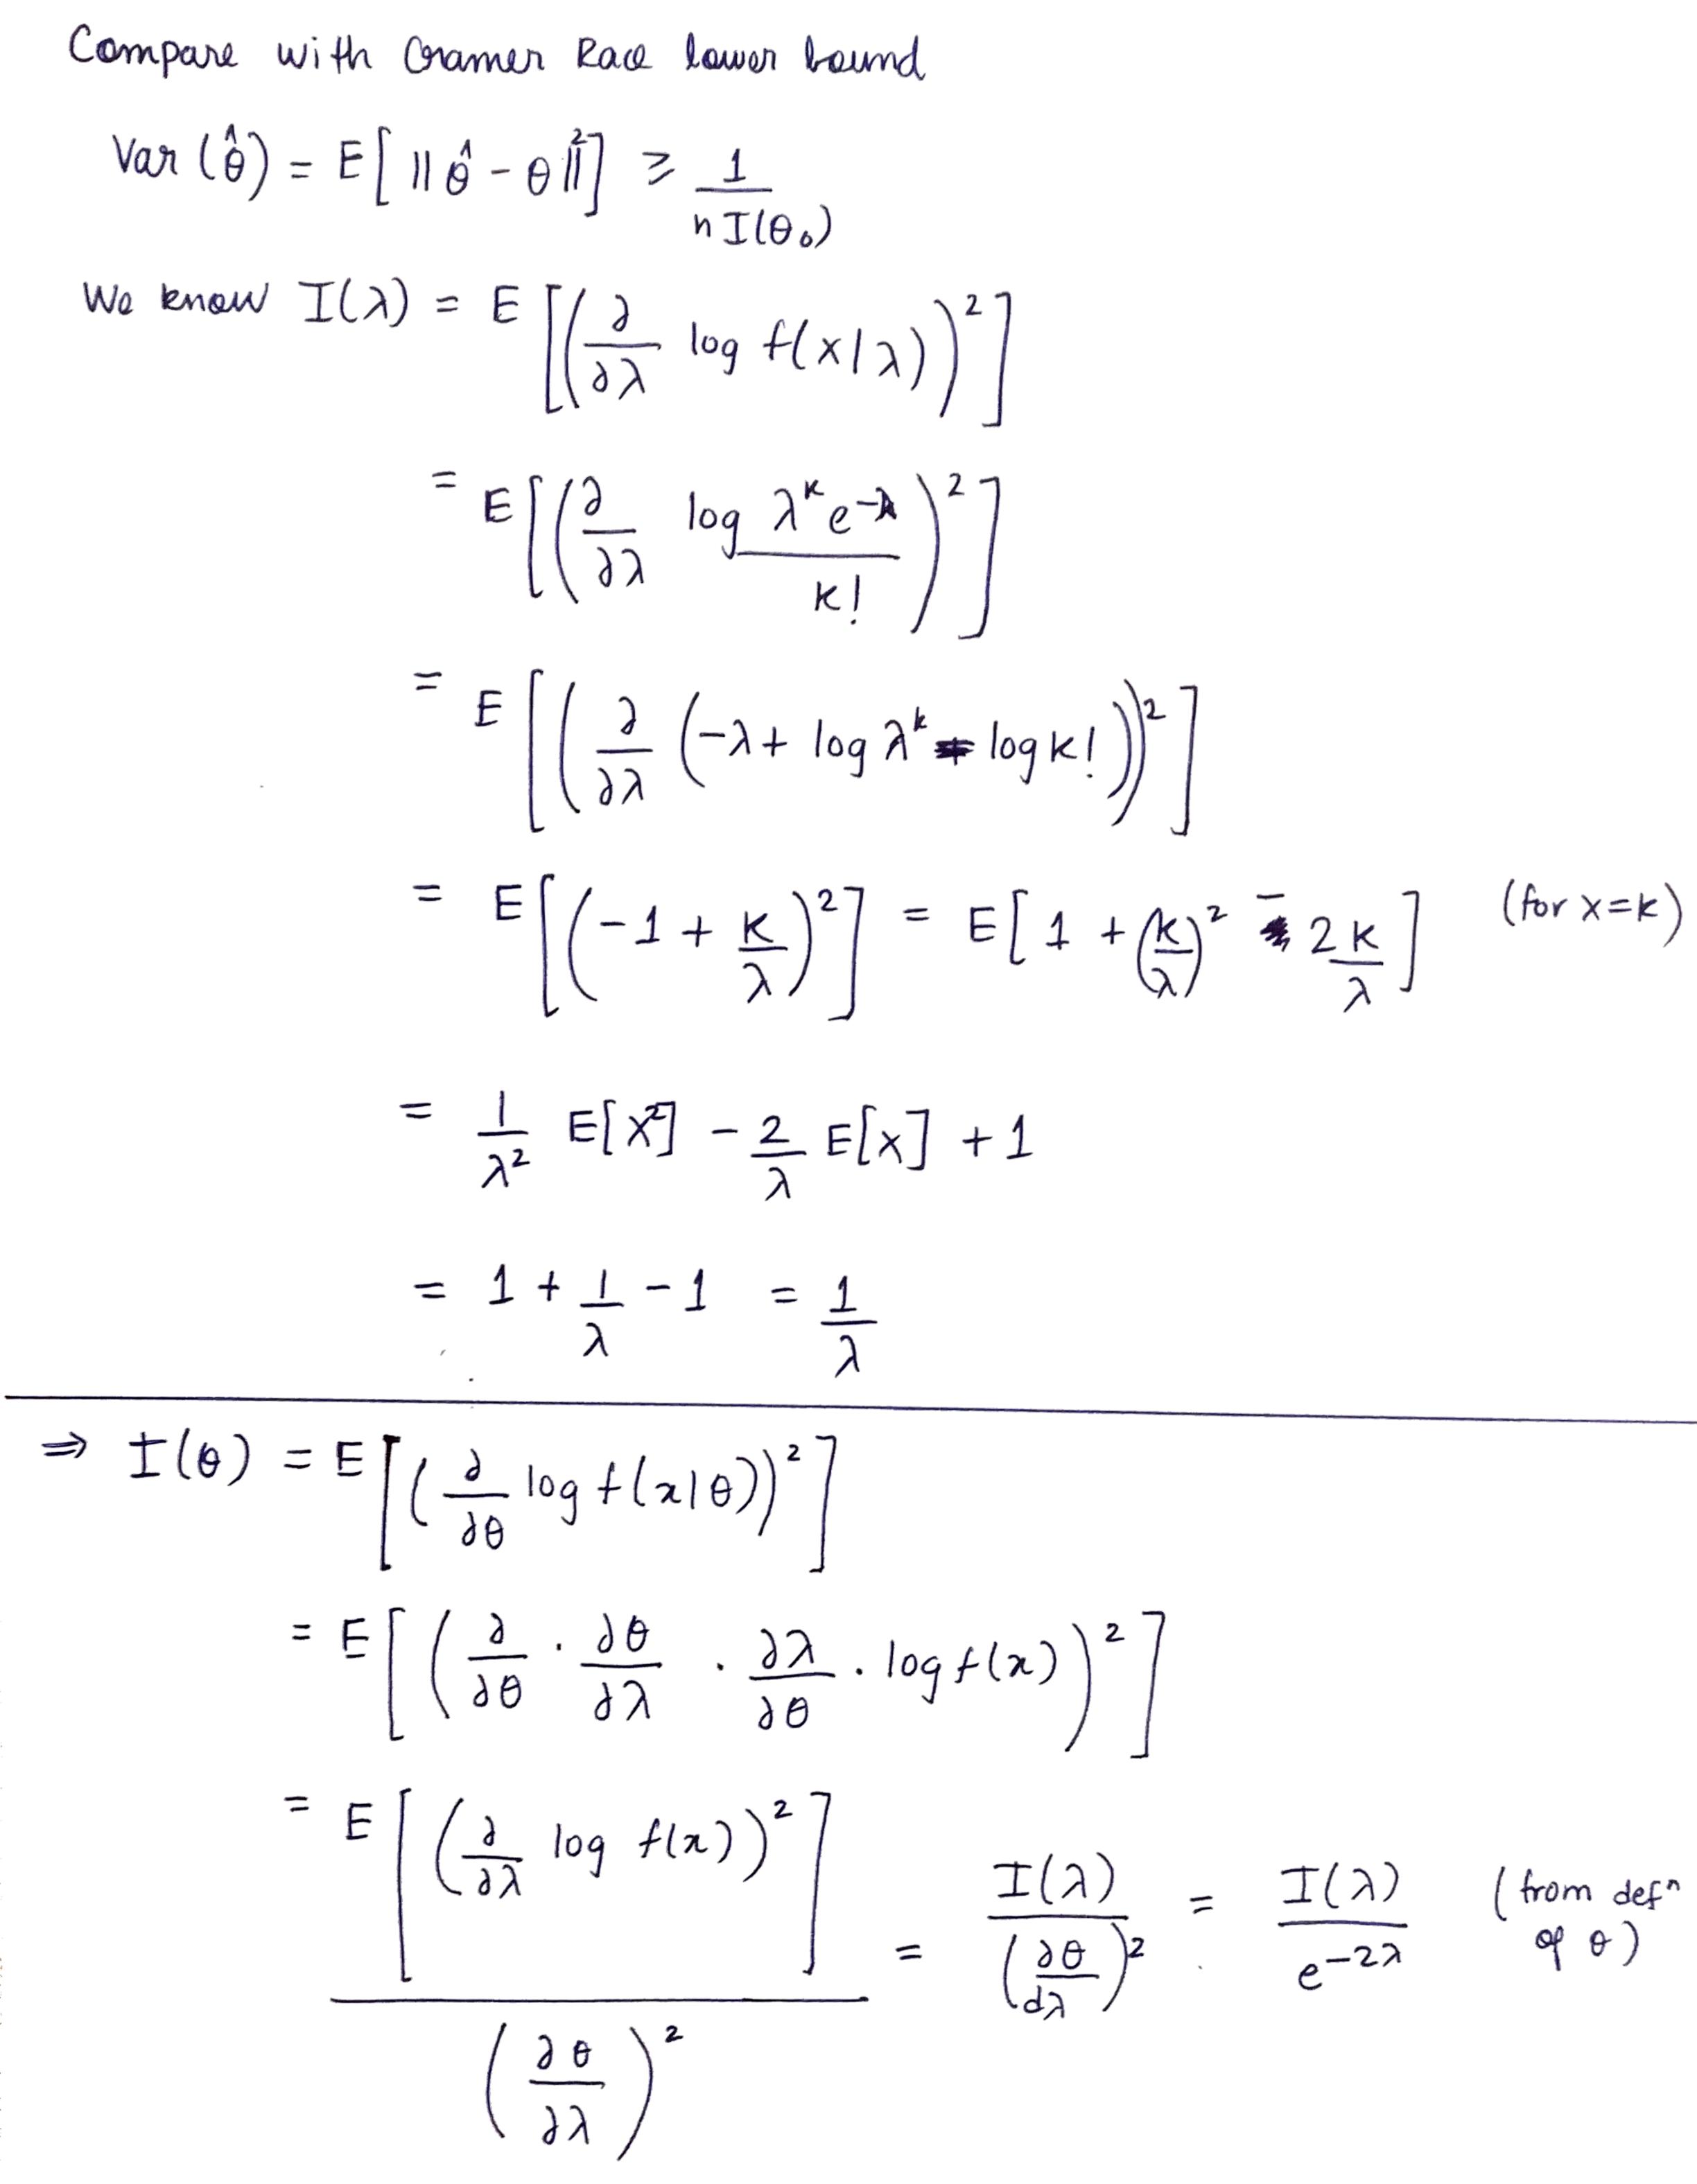 Compare with Cramer Race lower bound
Var(θ̂) = E[||θ̂ - θ||²] ≥ 1/(n I(θ₀))
We know I(λ) = E[(∂/∂λ log f(x|λ))²]
= E[(∂/∂λ log λᵏe^-λ / k!)²]
= E[(∂/∂λ (-λ + log λᵏ - log k!))²]
= E[(-1 + k/λ)²] = E[1 + (k/λ)² - 2k/λ] (for x=k)
= 1/λ² E[X²] - 2/λ E[X] + 1
= 1 + 1/λ - 1 = 1/λ
⇒ I(θ) = E[(∂/∂θ log f(x|θ))²]
= E[(∂/∂θ · ∂θ/∂λ · ∂λ/∂θ · log f(x))²]
= E[(∂/∂λ log f(x))²] / (∂θ/∂λ)² = I(λ)/(∂θ/dλ)² = I(λ)/e^-2λ (from defⁿ of θ)